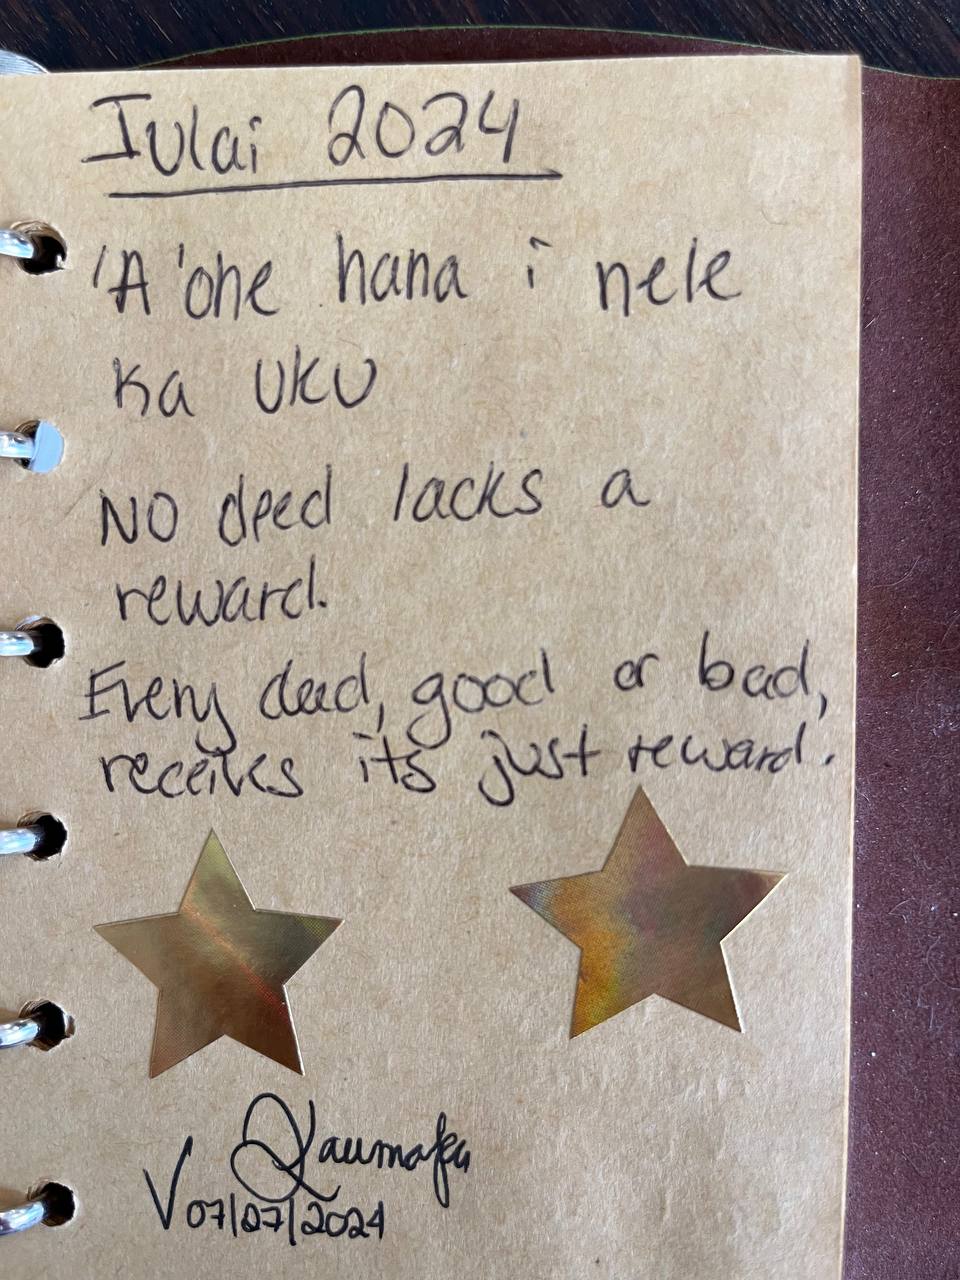 Iulai 2024
'A'ohe hana i nele
ka uku
No deed lacks a
reward.
Every deed, good or bad,
receives its just reward.
07/27/2024